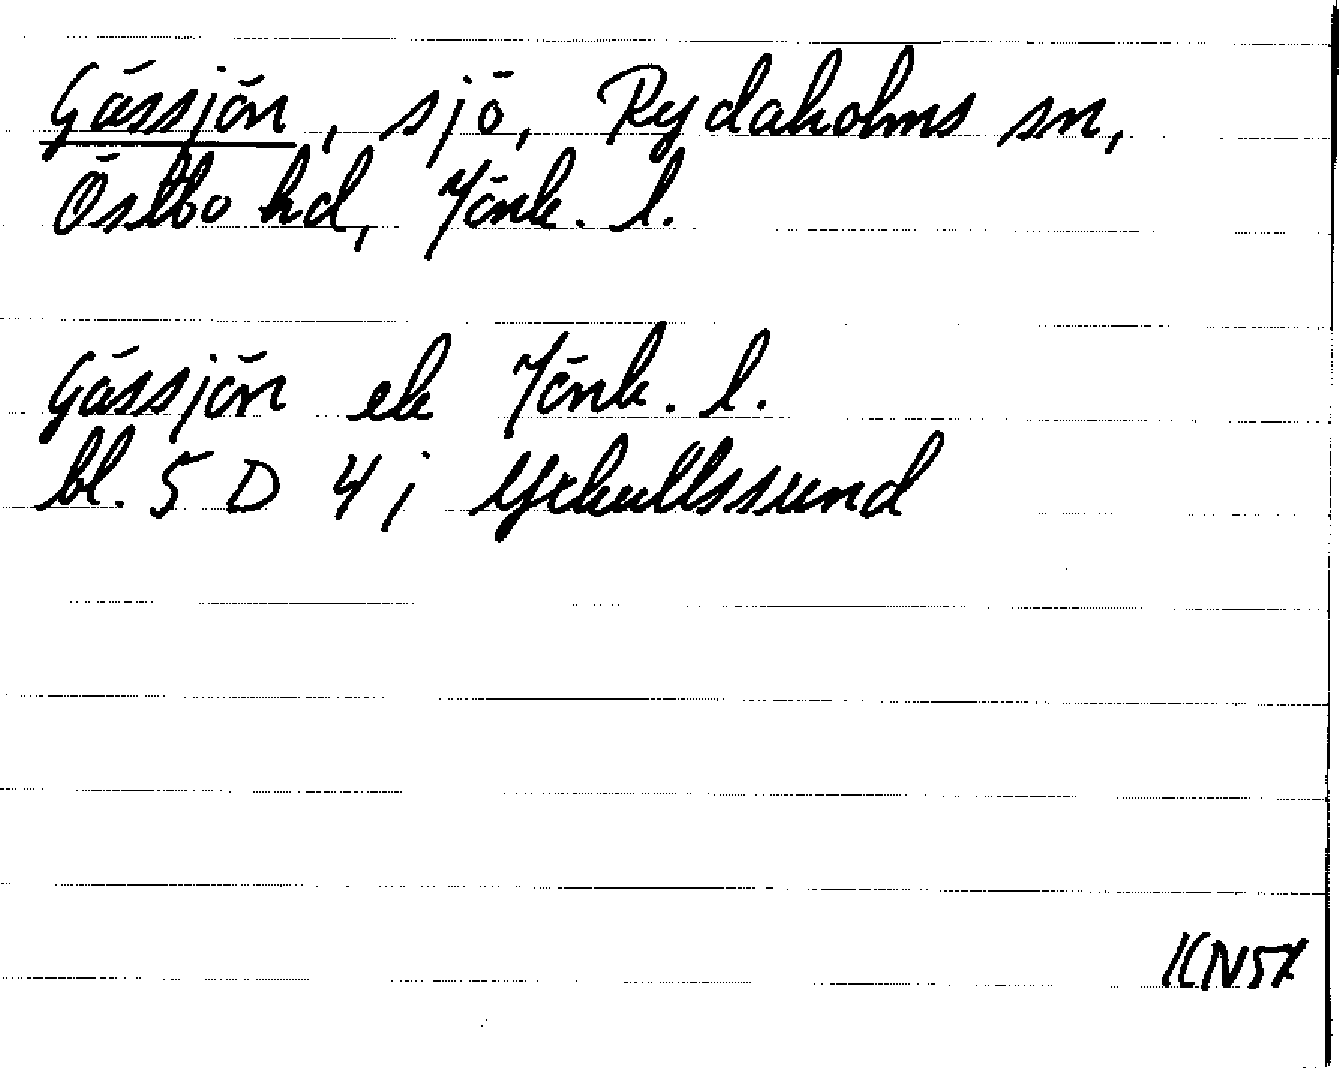 Gässjön, sjö, Rydaholms sn,
Östbo hd, Jönk. l.
Gässjön ek Jönk. l.
bl. 5 D 4 j Yxkullssund
KN57